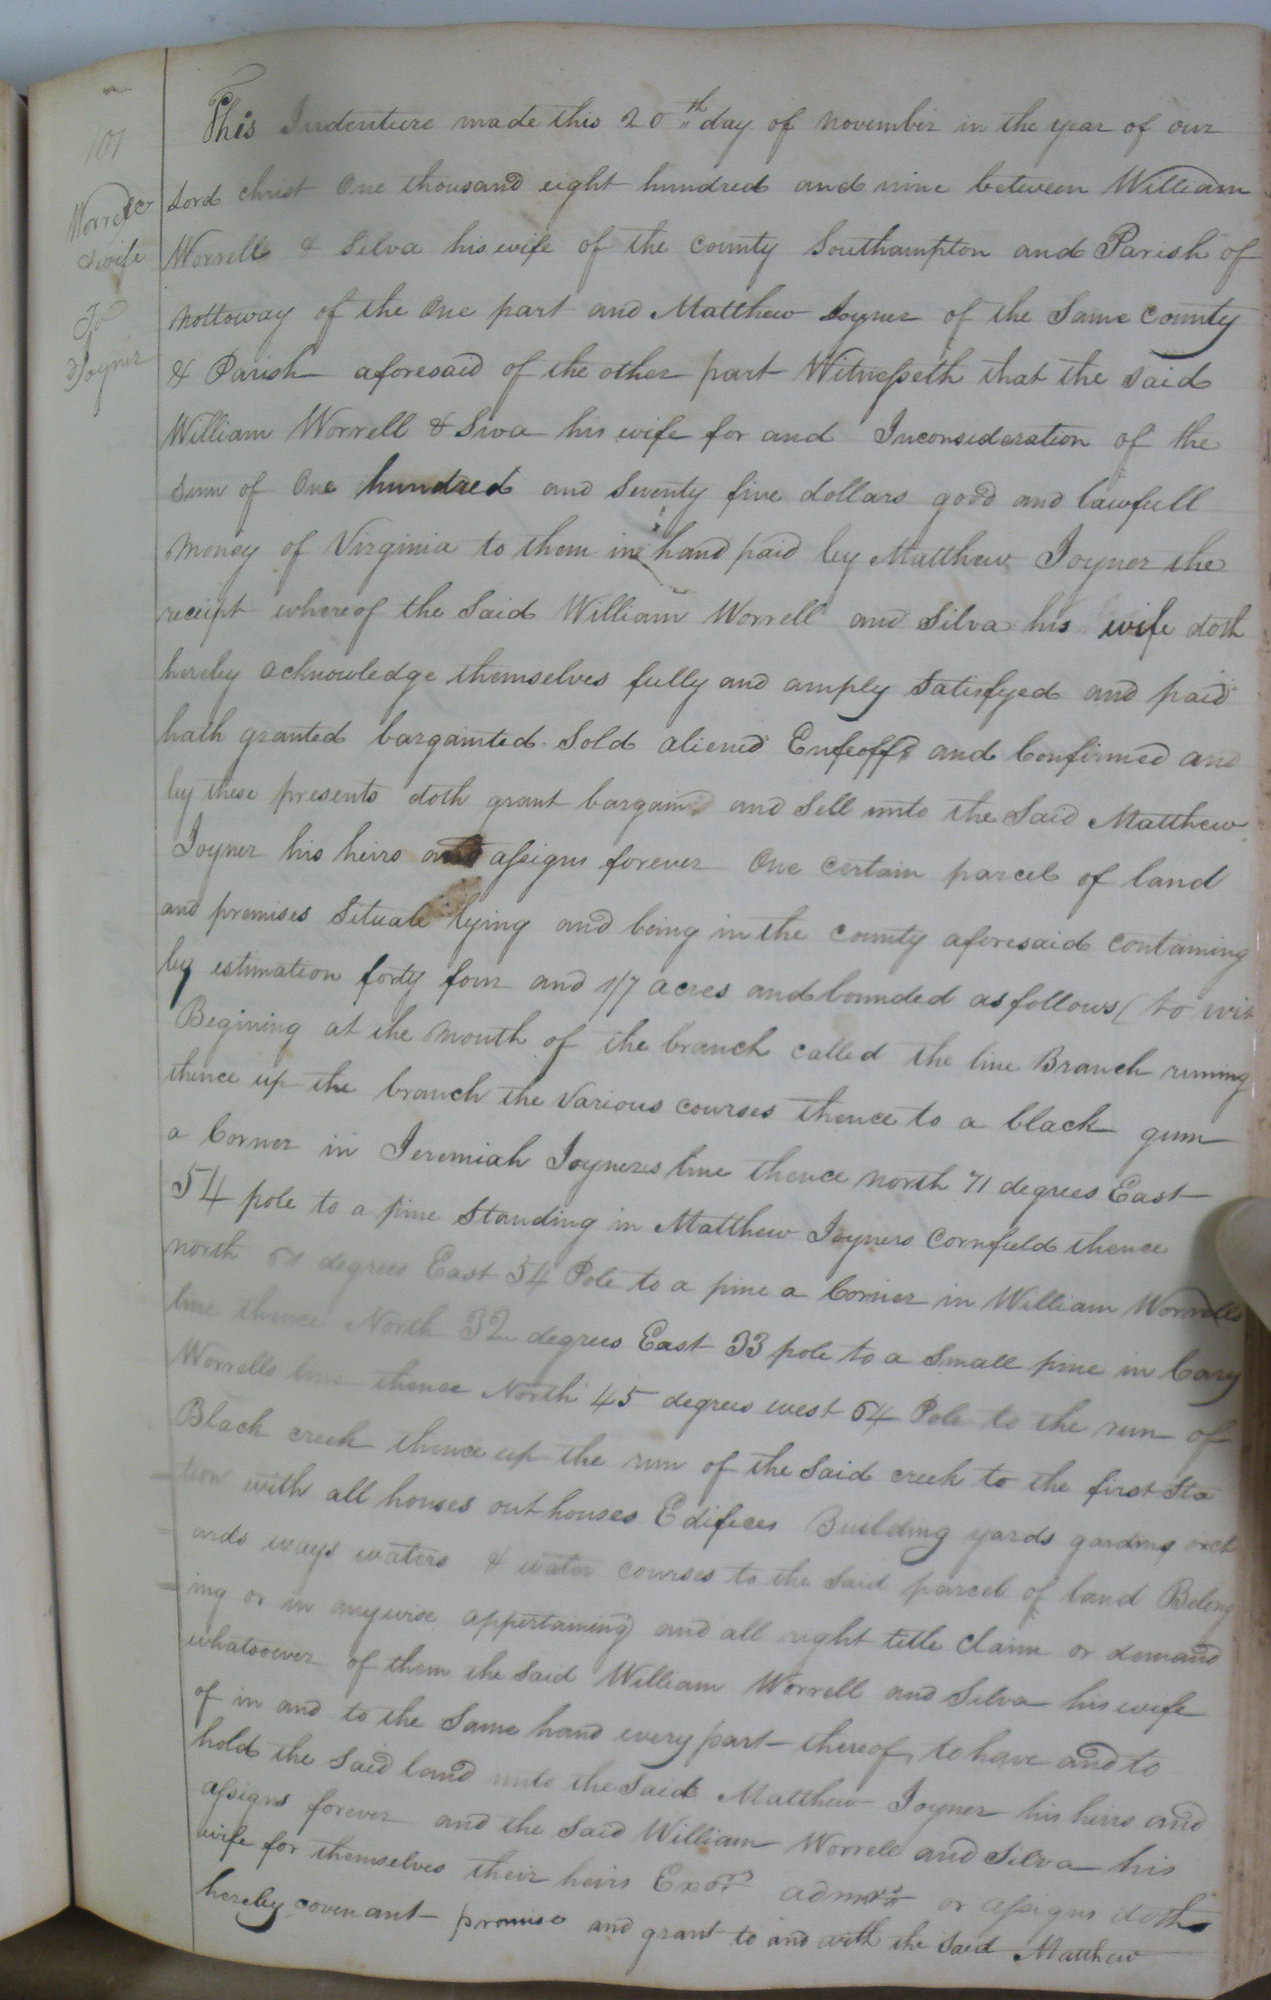 101
Worrell &
wife
To
Joyner
This Indenture made this 20th day of November in the year of our
Lord christ One thousand eight hundred and nine between William
Worrell & Silva his wife of the county Southampton and Parish of
Nottoway of the One part and Matthew Joyner of the Same County
& Parish aforesaid of the other part Witnesseth that the said
William Worrell & Siva his wife for and Inconsideration of the
Sum of One hundred and Seventy five dollars good and lawfull
Money of Virginia to them in hand paid by Matthew Joyner the
receipt whereof the Said William Worrell and Silva his wife doth
hereby acknowledge themselves fully and amply Satisfyed and paid
hath granted bargainted Sold aliened Enfeoffd and Confirmed and
by these presents doth grant bargain and Sell unto the Said Matthew
Joyner his heirs and assigns forever One certain parcel of land
and premises Situate lying and being in the county aforesaid containing
by estimation forty four and 1/7 acres and bounded as follows (to wit
Begining at the Mouth of the branch called the line Branch runing
thence up the branch the Various courses thence to a black gum
a Corner in Jeremiah Joyners line thence North 71 degrees East
54 pole to a pine Standing in Matthew Joyners Cornfield thence
North degrees East 54 Pole to a pine a Corner in William Worrells
line thence North 32 degrees East 33 pole to a Small pine in Cary
Worrells line thence North 45 degrees west 64 Pole to the run of
Black creek thence up the run of the Said creek to the first Sta
tion with all houses outhouses Edifices Building yards gardins orch
ards ways waters & water courses to the Said parcel of land Belong
ing or in anywise appertaining and all right title Claim or demand
whatsoever of them the Said William Worrell and Silva his wife
of in and to the Same hand every part thereof, to have and to
hold the Said land unto the Said Matthew Joyner his heirs and
assigns forever and the Said William Worrell and Silva his
wife for themselves their heirs Exors admrs or assigns doth
hereby covenant promise and grant to and with the Said Matthew